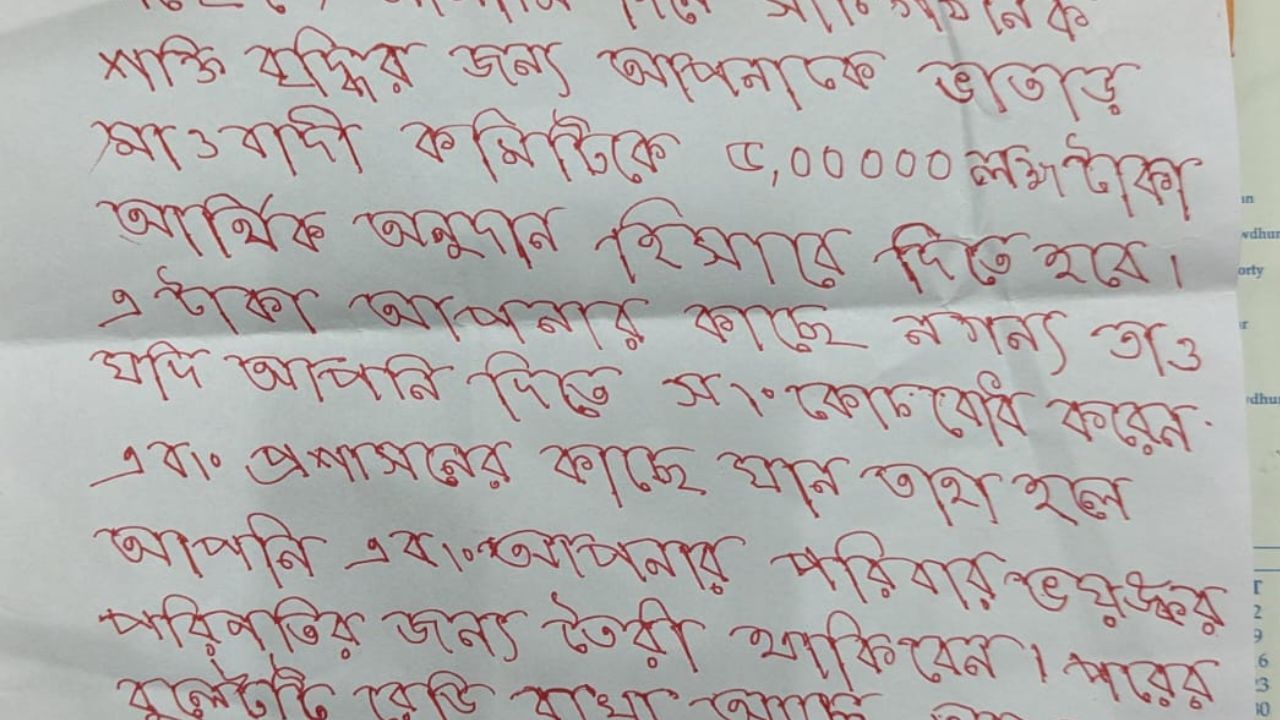 দিয়ে সাংগঠনিক
শক্তি বৃদ্ধির জন্য আপনাকে ভাতাড়
মাওবাদী কমিটিকে ৫,০০০০০ লক্ষ টাকা
আর্থিক অনুদান হিসাবে দিতে হবে।
এ টাকা আপনার কাছে নগন্য তাও
যদি আপনি দিতে সংকোচবোধ করেন
এবং প্রশাসনের কাছে যান তাহা হলে
আপনি এবং আপনার পরিবার ভয়ঙ্কর
পরিণতির জন্য তৈরী থাকিবেন। পরের
বুলেটটি রেডি রাখা আছে
wdhur
orty
dhur
T
2
9
6
23
30